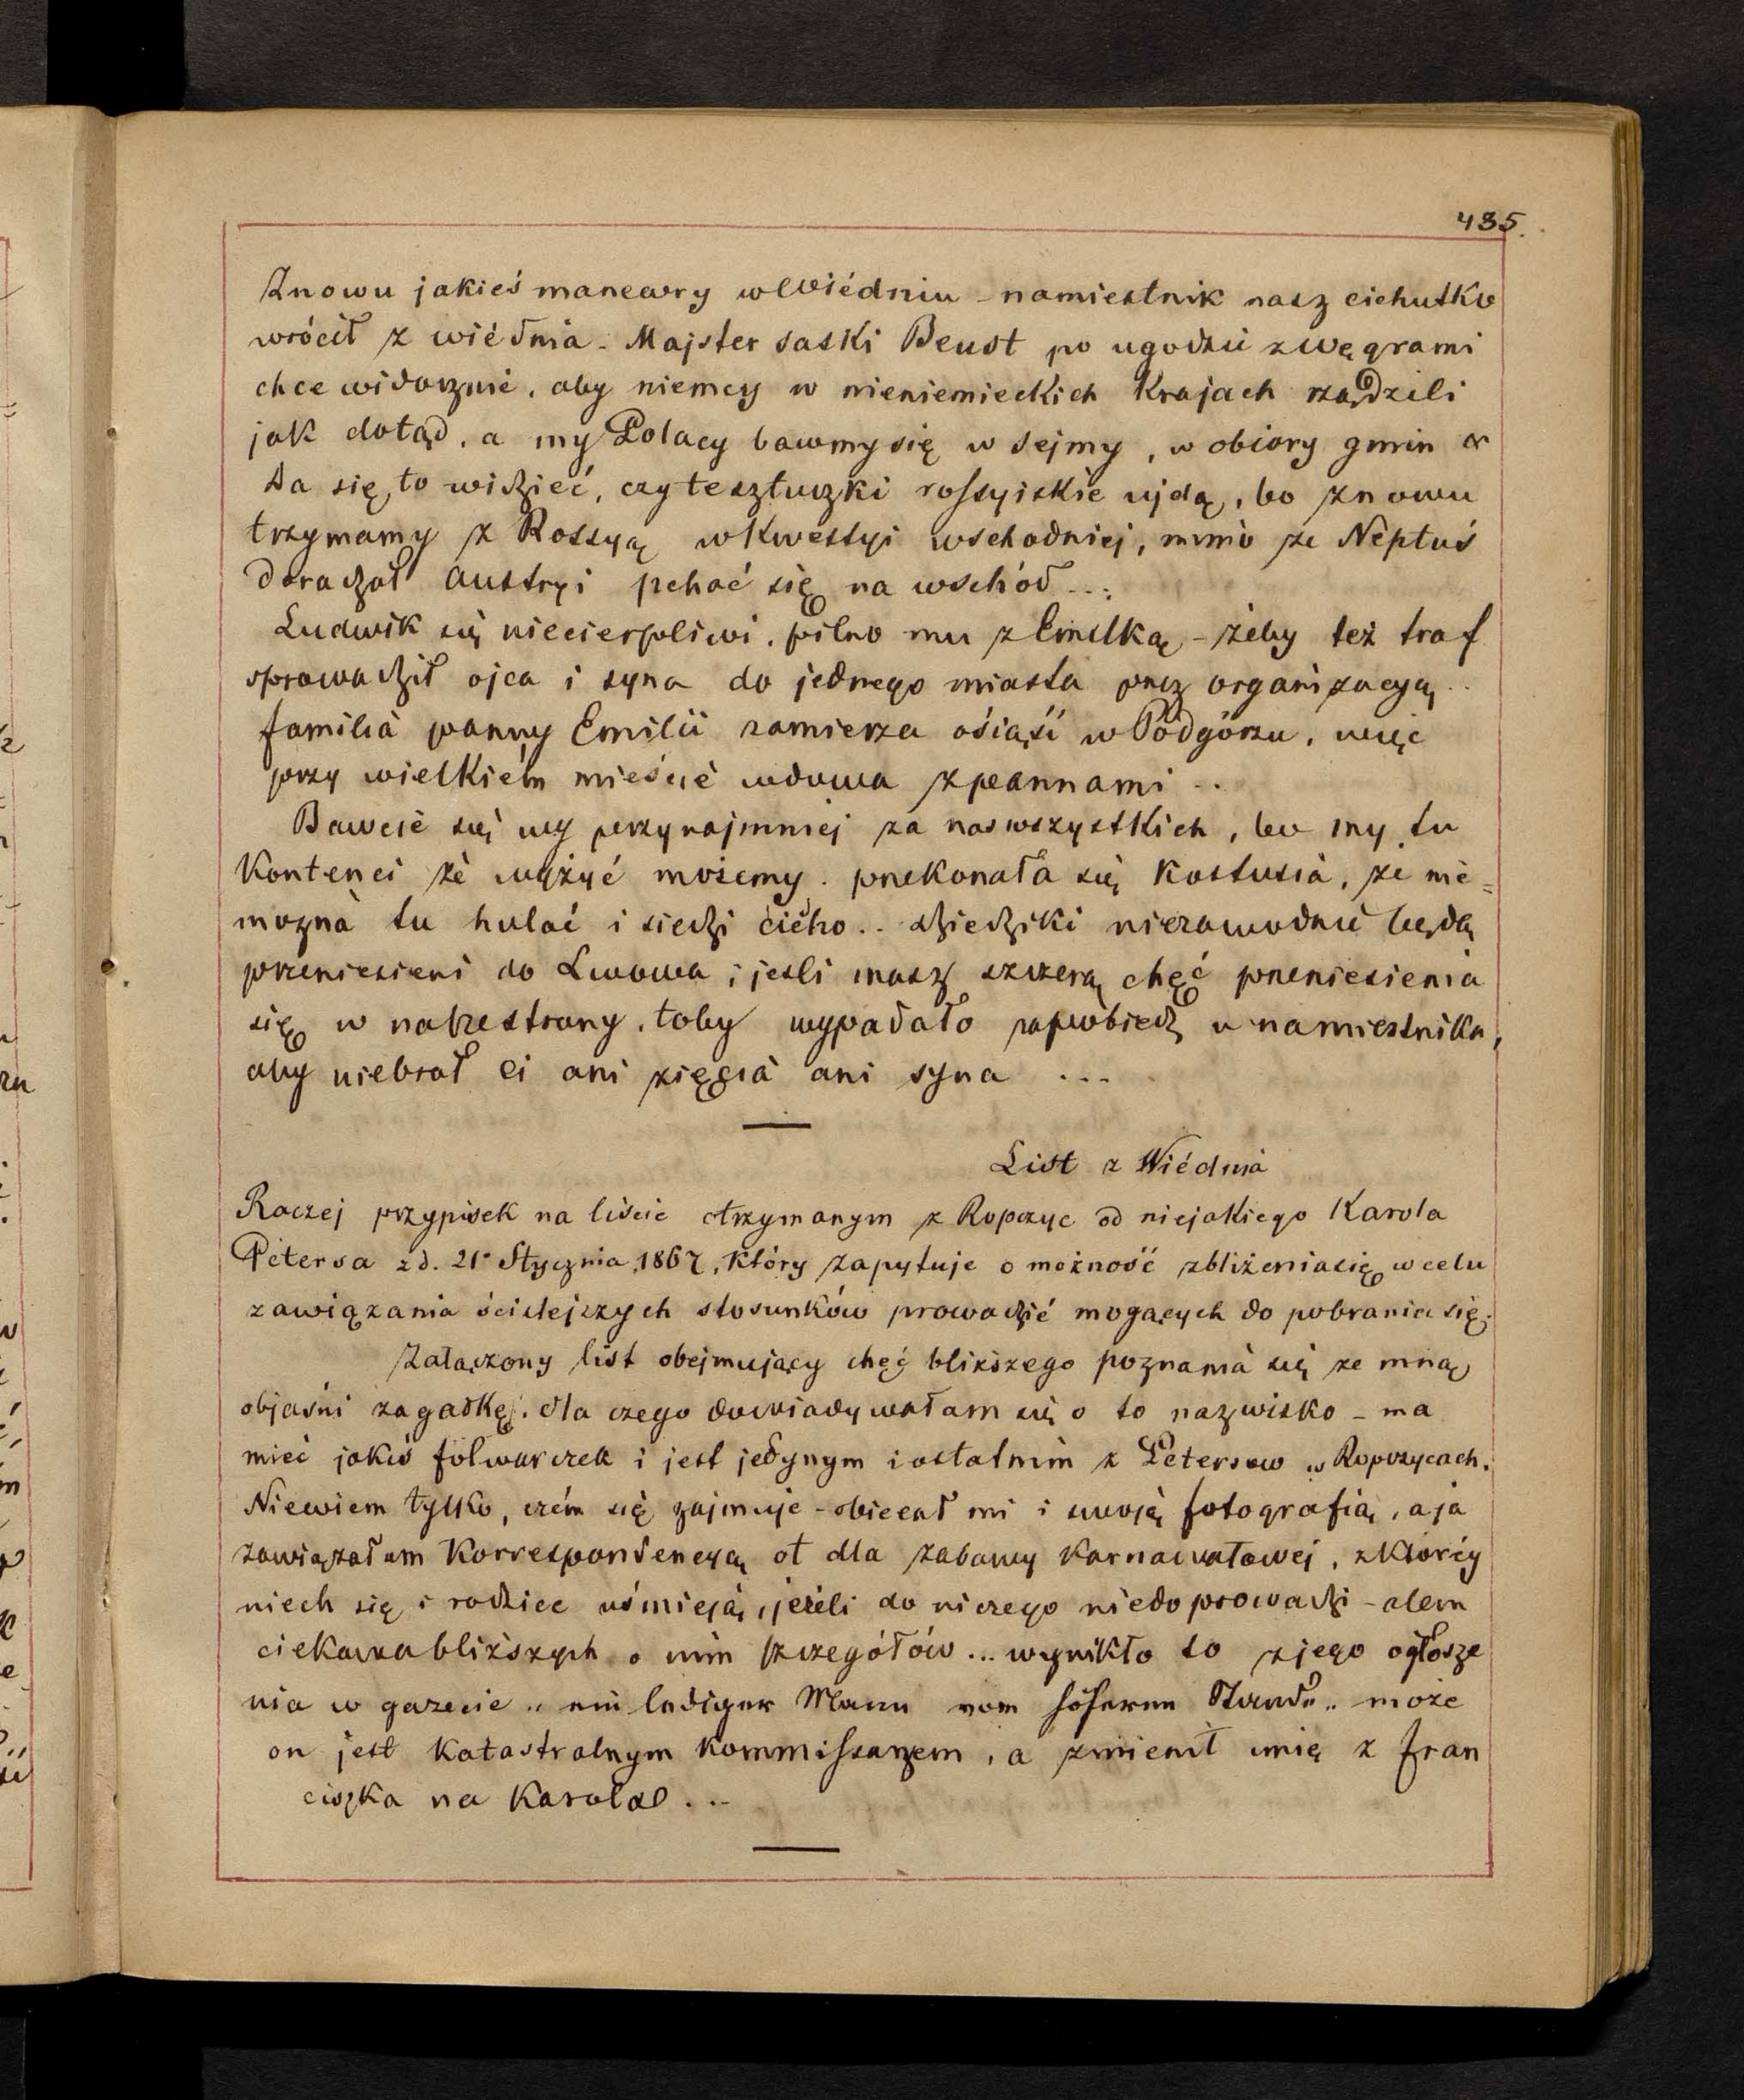 435.
Znowu jakieś manewry w Wiédniu – namiestnik nasz cichutko
wrócił z wiédnia – Majster saski Beust po ugodzie z węgrami
chce widocznie, aby niemcy w nieniemieckich Krajach rządzili
jak dotąd, a my Polacy bawmy się w sejmy, w obiory gmin &
Da się to widzieć, czy te sztuczki rossyiskie ujdą, bo znowu
trzymamy z Rossyą w Kwestyi wschodniej, mimo że Neptuś
doradzał Austryi pchać się na wschód ...
Ludwik się niecierpliwi, pilno mu z Emilką – żeby też traf
sprowadził ojca i syna do jednego miasta przez organizacyą ..
familia panny Emilii zamierza osiąść w Podgórzu, więc
przy wielkiém mieście wdowa z pannami ..
Bawcie się wy przynajmniej za nas wszystkich, bo my tu
Kontenci że wyżyć możemy. przekonała się Kostusia, że nie=
można tu hulać i siedzi cicho .. dziedziki niezawodnie będą
przeniesieni do Lwowa; jeśli masz szczerą chęć przeniesienia
się w nasze strony, toby wypadało zapobiedz u namiestnika,
aby niebrał ci ani zięcia ani syna ...
List z Wiédnia
Raczej przypisek na liście otrzymanym z Ropczyc od niejakiego Karola
Petersa z d. 21 Stycznia 1867, który zapytuje o możność zbliżenia się w celu
zawiązania ścislejszych stosunków prowadzić mogących do pobrania się.
Załączony list obejmujący chęć bliższego poznania się ze mną
objaśni zagadkę, dla czego dowiadywałam się o to nazwisko – ma
mieć jakiś folwarczek i jest jedynym i ostatnim z Petersów w Ropczycach.
Niewiem tylko, czém się zajmuje – obiecał mi i swoją fotografią, a ja
zawiązałam Korrespondencyą ot dla zabawy karnawałowej, z Któréj
niech się i rodzice uśmieją, jeżeli do niczego niedoprowadzi – alem
ciekawa bliższych o nim szczegółów ... wynikło to z jego ogłosze
nia w gazecie „ ein lediger Mann vom höheren Stande „ może
on jest Katastralnym Kommissarzem, a zmienił imię z Fran
ciszka na Karola ...